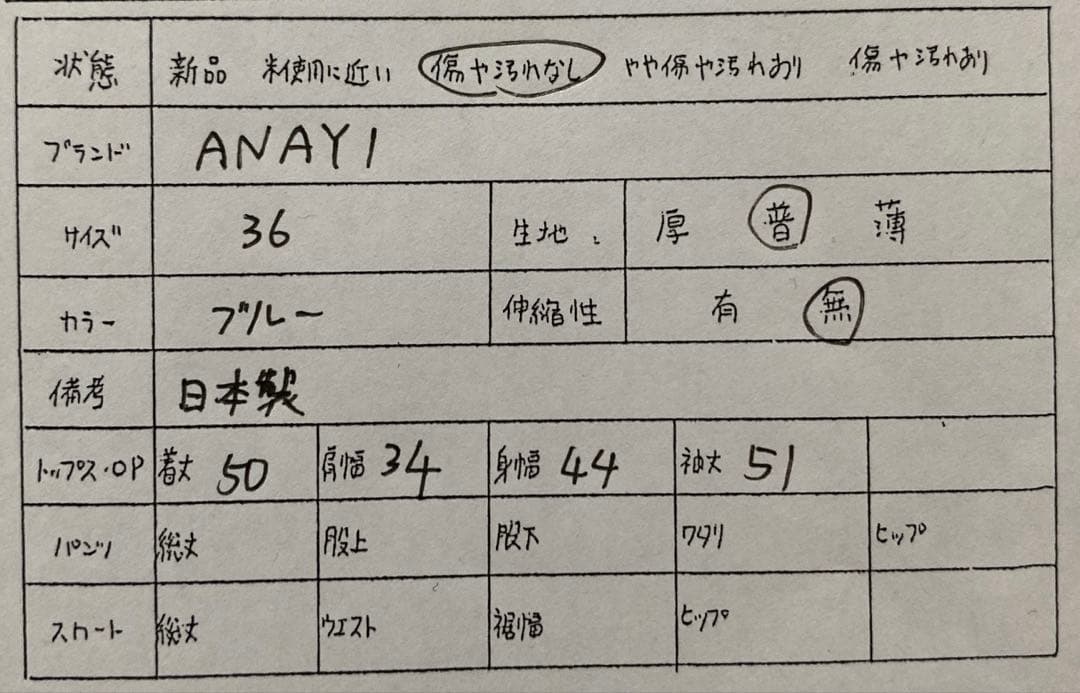 状態 新品 未使用に近い 傷や汚れなし やや傷や汚れあり 傷や汚れあり
ブランド ANAYI
サイズ 36 生地 厚 普 薄
カラー ブルー 伸縮性 有 無
備考 日本製
トップス・OP 着丈 50 肩幅 34 身幅 44 袖丈 51
パンツ 総丈 股上 股下 ワタリ ヒップ
スカート 総丈 ウエスト 裾幅 ヒップ